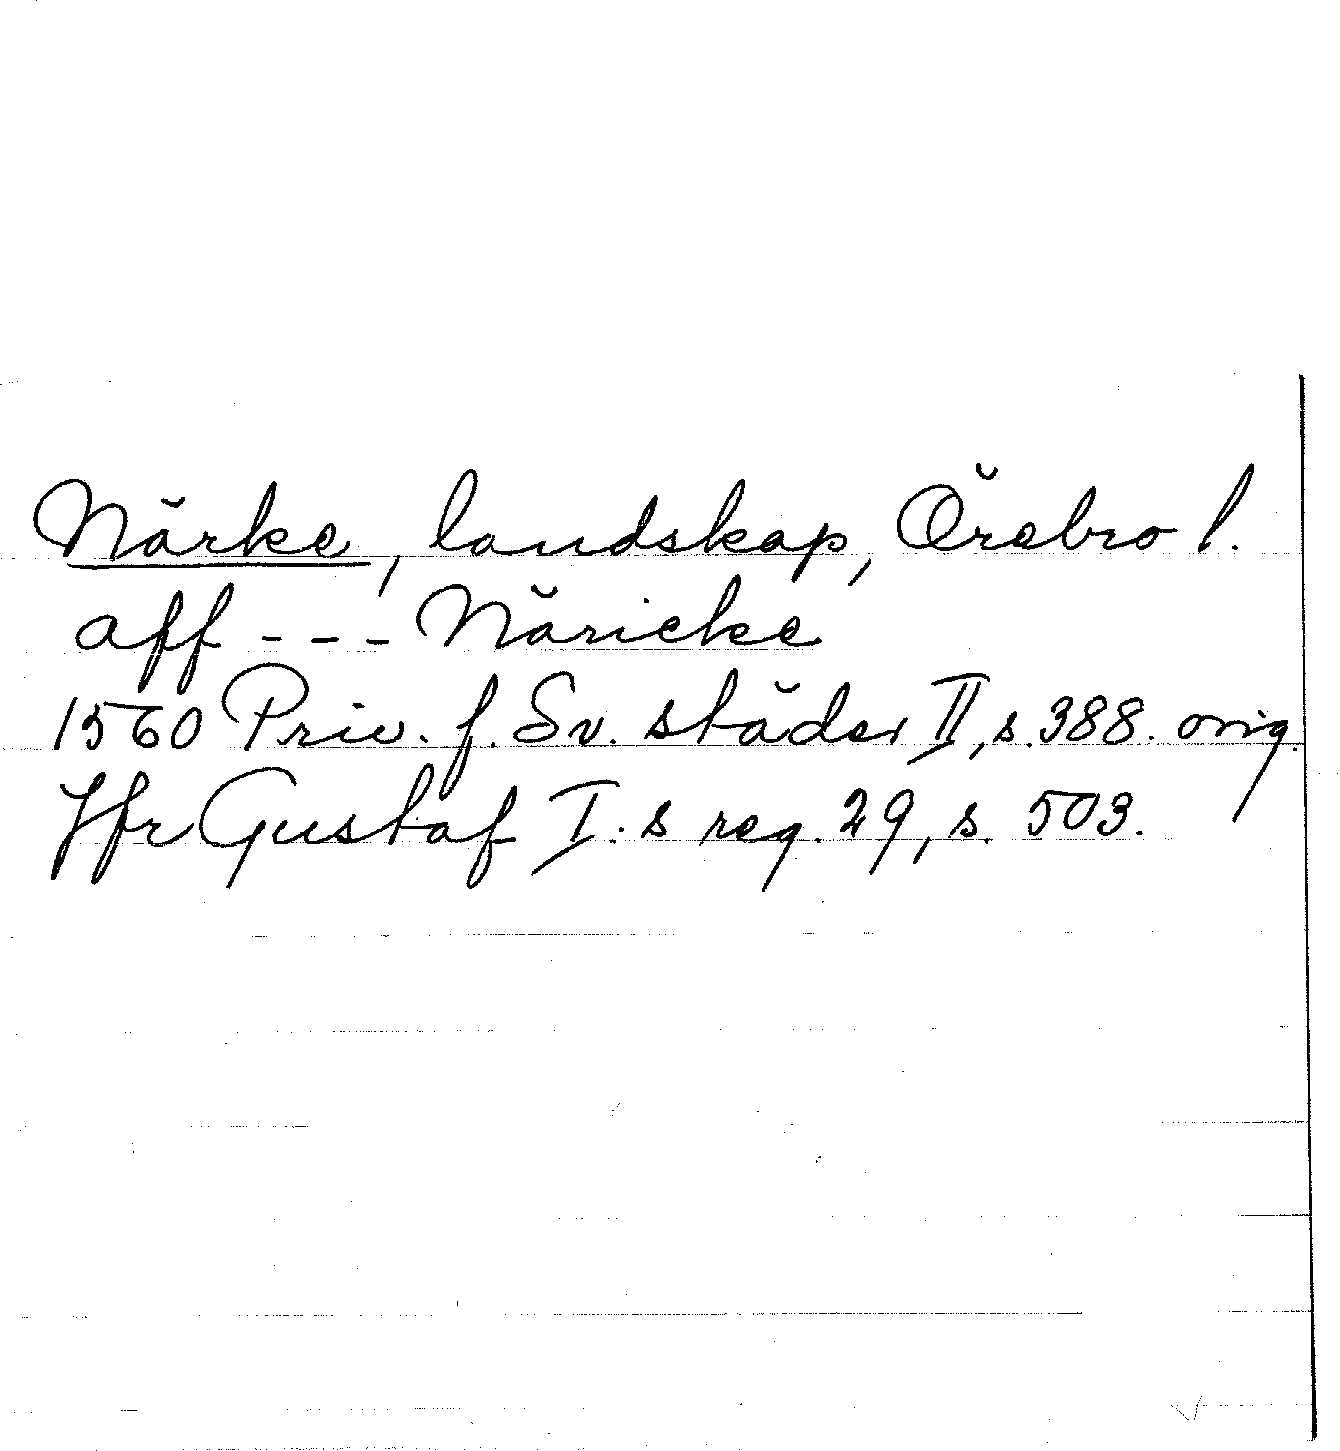 Närke, landskap, Örebro l.
aff - - - Näricke
1560 Priv. f. Sv. städer II, s. 388. orig.
Jfr Gustaf I.s reg. 29, s. 503.